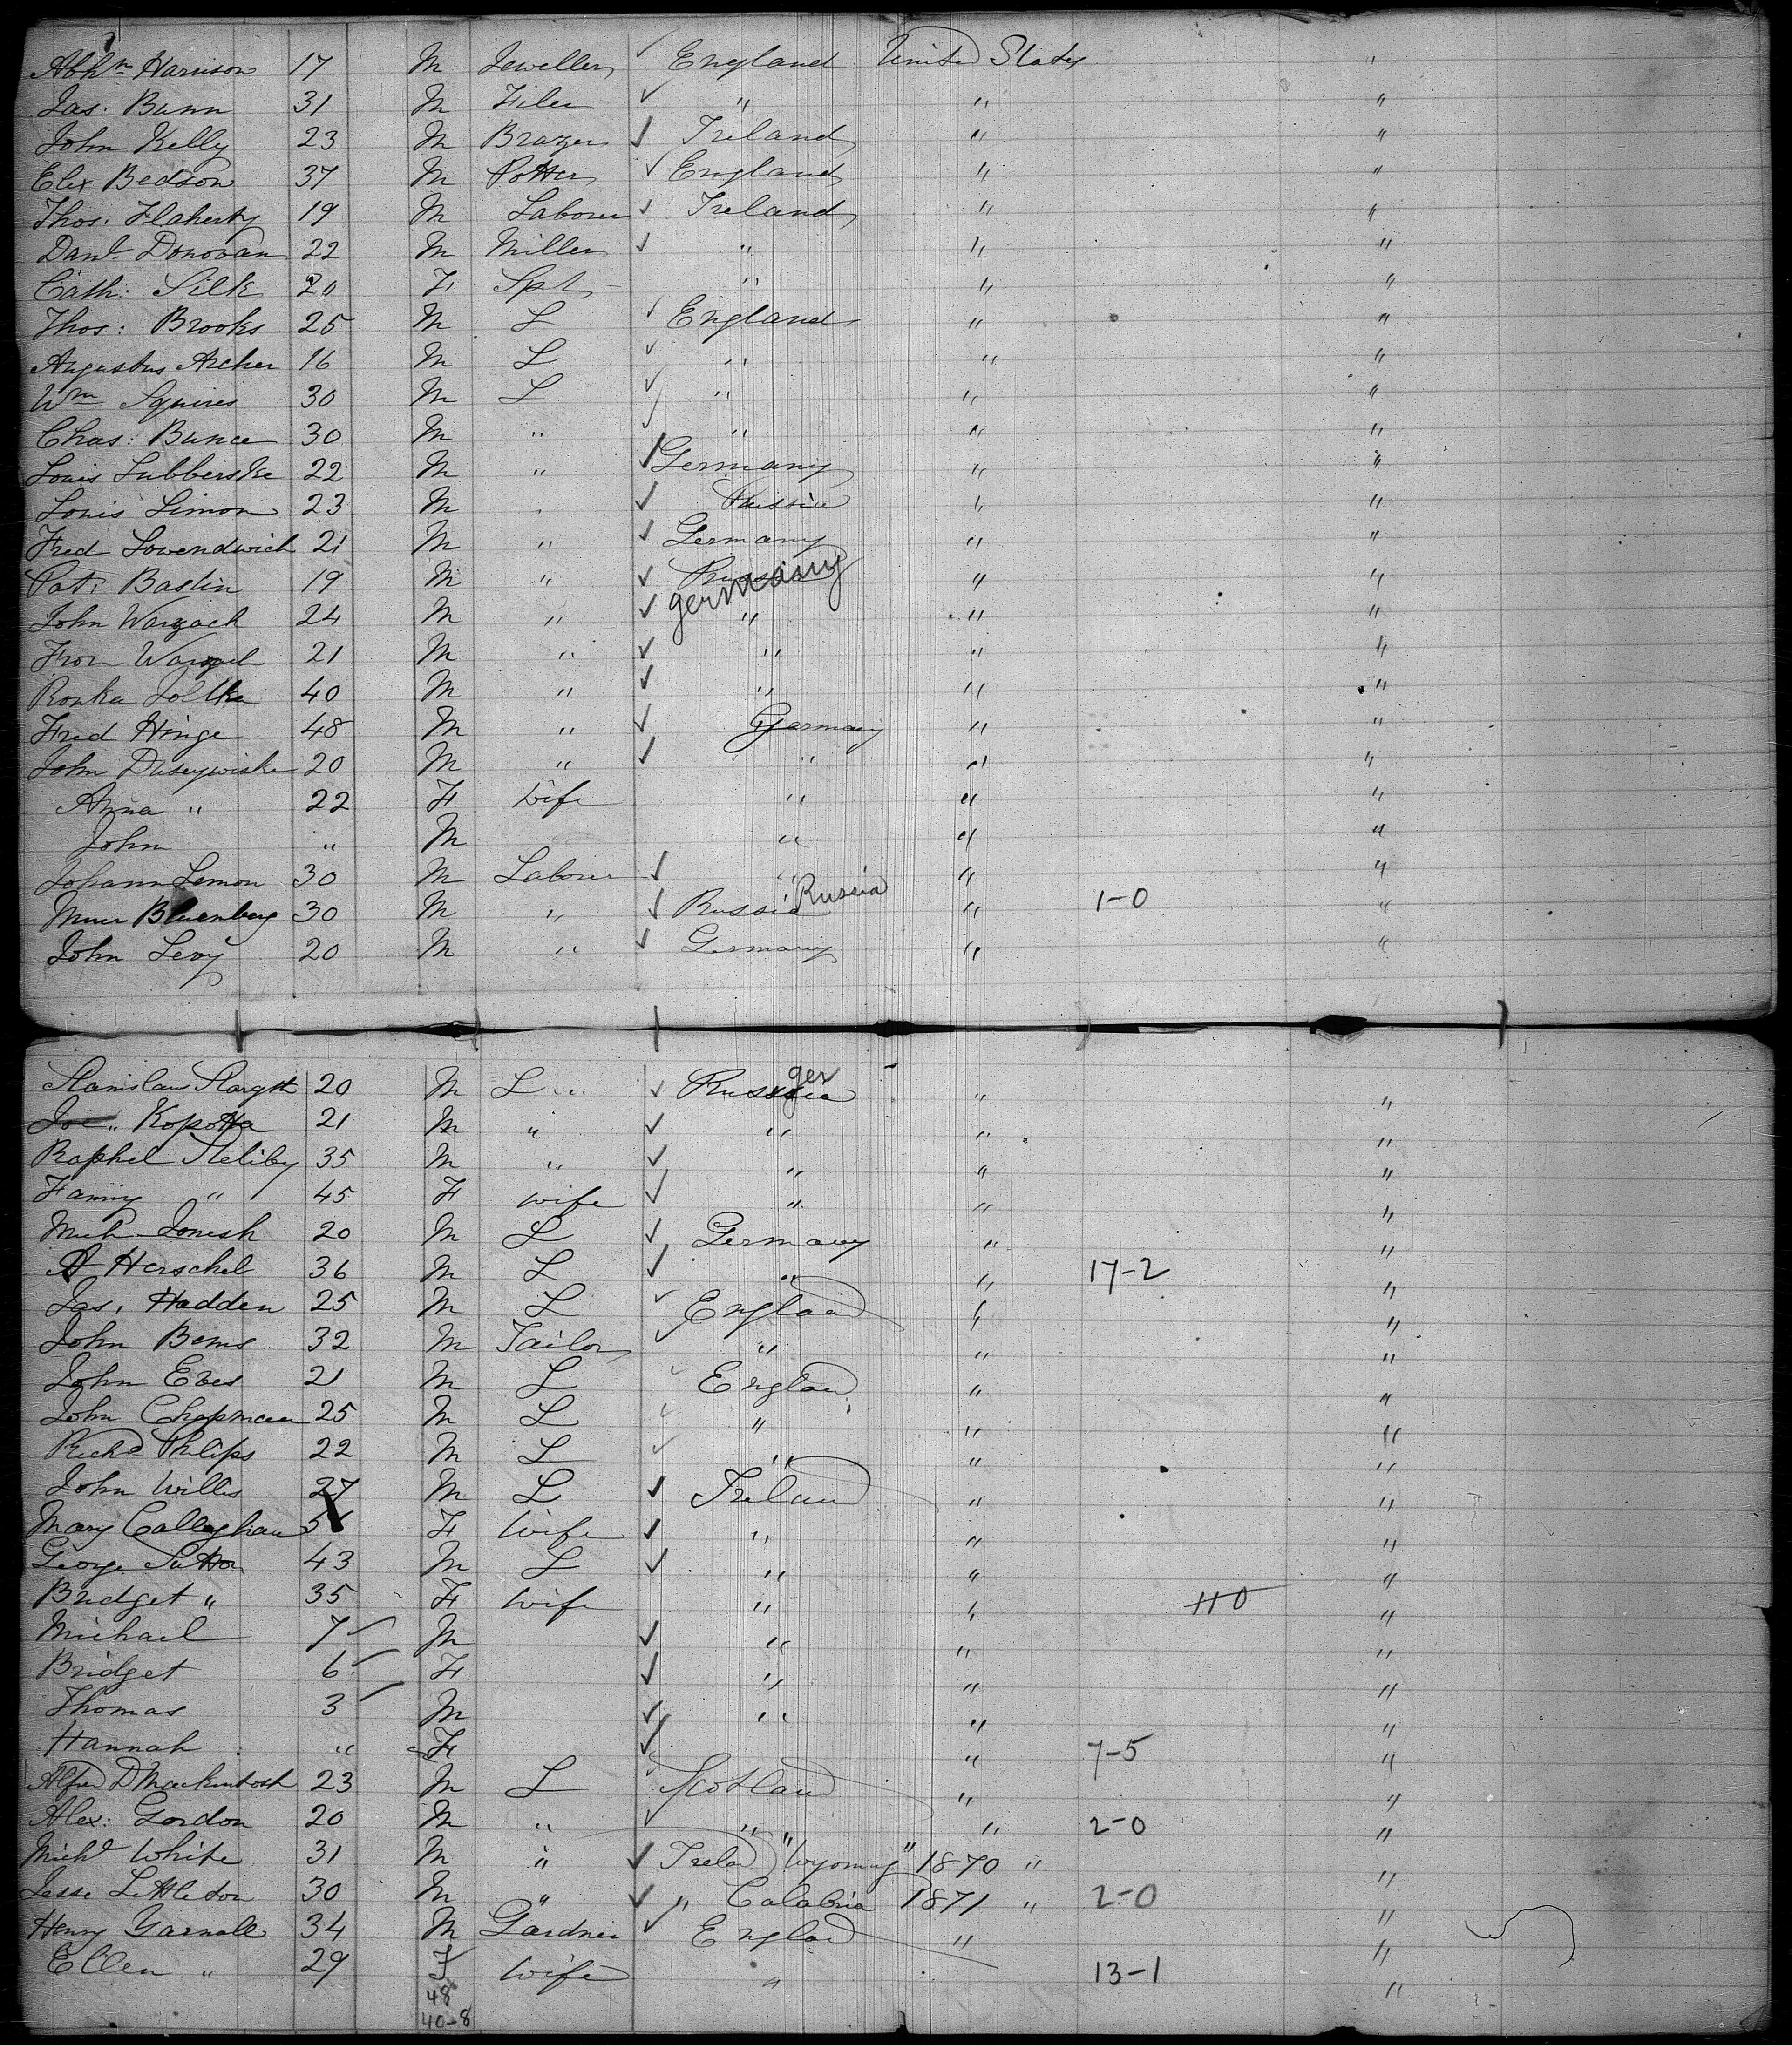 Abhm Harrison 17 M Jeweller ✓ England United States "
Jas. Bunn 31 M Filer ✓ " " "
John Kelly 23 M Brazer ✓ Ireland " "
Elex Bedson 37 M Potter ✓ England " "
Thos. Flaherty 19 M Laborer ✓ Ireland " "
Danl Donovan 22 M Miller ✓ " " "
Cath: Silk 20 F Spt - " " "
Thos: Brooks 25 M L ✓ England " "
Augustus Archer 16 M L ✓ " " "
Wm Squires 30 M L ✓ " " "
Chas: Bunce 30 M " ✓ " " "
Louis Lubberske 22 M " ✓ Germany " "
Louis Simon 23 M " ✓ Russia " "
Fred Lowendwich 21 M " ✓ Germany " "
Pat: Bastin 19 M " ✓ germany " "
John Warzack 24 M " ✓ " " "
From 21 M " ✓ " " "
Ronka 40 M " ✓ " " "
Fred Hinge 48 M " ✓ Germany " "
John 20 M " ✓ " " "
Anna " 22 F Wife " " "
John " M " " "
Johann Lemon 30 M Laborer ✓ " " "
Bluenberg 30 M " ✓ Russia Russia " 1-0 "
John Levy 20 M " ✓ Germany " "
Stanislaus 20 M L " ✓ Russia ger " "
Joe " Kopotta 21 M " ✓ " " "
Raphel Steliby 35 M " ✓ " " "
Fanny " 45 F wife ✓ " " "
Mich Jonesh 20 M L ✓ Germany " "
A Herschel 36 M L ✓ " " 17-2 "
Jas. Hadden 25 M L ✓ England " "
John Bems 32 M Tailor ✓ " " "
John Eves 21 M L ✓ England " "
John Chapman 25 M L ✓ " " "
Richd Philips 22 M L ✓ " " "
John Willis 27 M L ✓ Ireland " "
Mary Callaghan 5 F Wife ✓ " " "
George Sutton 43 M L ✓ " " "
Bridget " 35 F Wife " " 110 "
Michael 7 M ✓ " " "
Bridget 6 F ✓ " " "
Thomas 3 M ✓ " " "
Hannah " F ✓ " 7-5 "
Alfred D Mackintosh 23 M L ✓ Scotland " "
Alex: Gordon 20 M " ✓ " " 2-0 "
Michl White 31 M " ✓ Ireland "Wyoming" 1870 " "
Jesse Littledon 30 M " ✓ " Calabria 1871 " 2-0 "
Henry Garnall 34 M Gardner ✓ England " "
Ellen " 29 F Wife " 13-1 "
48
40-8